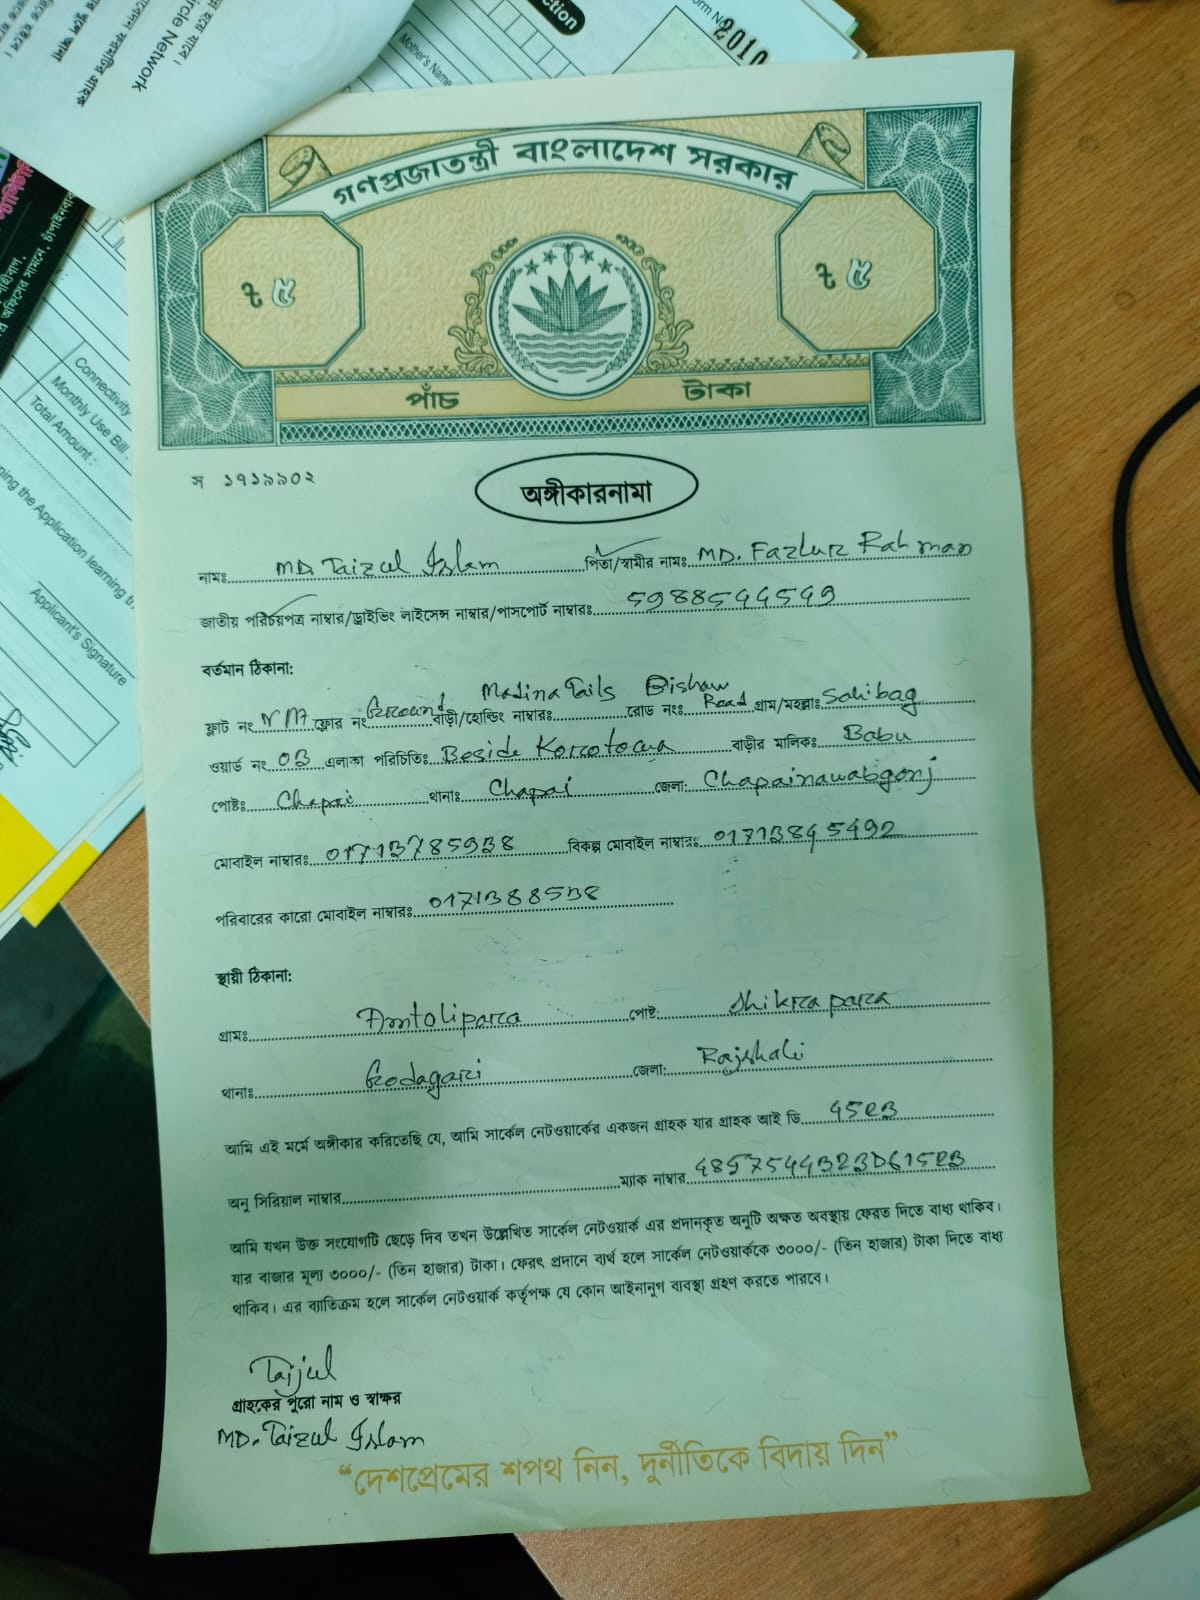 ction
orm No
2010
Mother's Name
rcle Network
Connectivity
Monthly Use Bill :
Total Amount :
ning the Application learning th
Applicant's Signature
গণপ্রজাতন্ত্রী বাংলাদেশ সরকার
৳ ৫
৳ ৫
পাঁচ টাকা
স ১৭১৯৯০২
অঙ্গীকারনামা
নামঃ MD. Taizul Islam পিতা/স্বামীর নামঃ MD. Fazlur Rahman
জাতীয় পরিচয়পত্র নাম্বার/ড্রাইভিং লাইসেন্স নাম্বার/পাসপোর্ট নাম্বারঃ 5988544549
বর্তমান ঠিকানা:
ফ্লাট নং NM ফ্লোর নং Ground বাড়ী/হোল্ডিং নাম্বারঃ Madina Tails রোড নংঃ Bishaw Road গ্রাম/মহল্লাঃ Sahibag
ওয়ার্ড নং 03 এলাকা পরিচিতিঃ Beside Korotoya বাড়ীর মালিকঃ Babu
পোষ্টঃ Chapai থানাঃ Chapai জেলা: Chapainawabgonj
মোবাইল নাম্বারঃ 01713785938 বিকল্প মোবাইল নাম্বারঃ 01713845492
পরিবারের কারো মোবাইল নাম্বারঃ 0171388538
স্থায়ী ঠিকানা:
গ্রামঃ Amtolipara পোষ্ট: Shikrapara
থানাঃ Godagari জেলা: Rajshahi
আমি এই মর্মে অঙ্গীকার করিতেছি যে, আমি সার্কেল নেটওয়ার্কের একজন গ্রাহক যার গ্রাহক আই ডি 4523
অনু সিরিয়াল নাম্বার ম্যাক নাম্বার 4857544323D61523
আমি যখন উক্ত সংযোগটি ছেড়ে দিব তখন উল্লেখিত সার্কেল নেটওয়ার্ক এর প্রদানকৃত অনুটি অক্ষত অবস্থায় ফেরত দিতে বাধ্য থাকিব।
যার বাজার মূল্য ৩০০০/- (তিন হাজার) টাকা। ফেরৎ প্রদানে ব্যর্থ হলে সার্কেল নেটওয়ার্ককে ৩০০০/- (তিন হাজার) টাকা দিতে বাধ্য
থাকিব। এর ব্যাতিক্রম হলে সার্কেল নেটওয়ার্ক কর্তৃপক্ষ যে কোন আইনানুগ ব্যবস্থা গ্রহণ করতে পারবে।
Taijul
গ্রাহকের পুরো নাম ও স্বাক্ষর
MD. Taizul Islam
“দেশপ্রেমের শপথ নিন, দুর্নীতিকে বিদায় দিন”